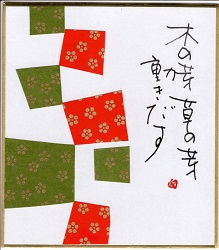 木の芽草の芽
動きだす